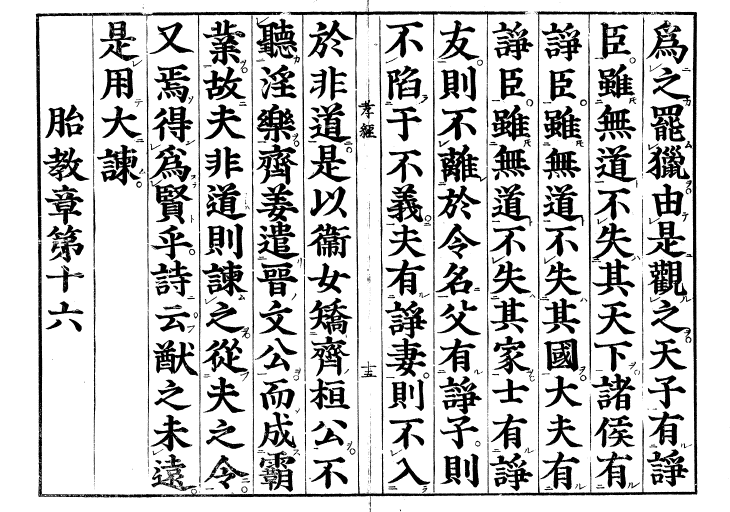 爲之罷獵由是觀之天子有諍
臣雖無道不失其天下諸侯有
諍臣雖無道不失其國大夫有
諍臣雖無道不失其家士有諍
友則不離於令名父有諍子則
不陷于不義夫有諍妻則不入
孝經
十五
於非道是以衞女矯齊桓公不
聽淫樂齊姜遣晉文公而成霸
業故夫非道則諫之從夫之令
又焉得爲賢乎詩云猷之未遠
是用大諫
胎教章第十六